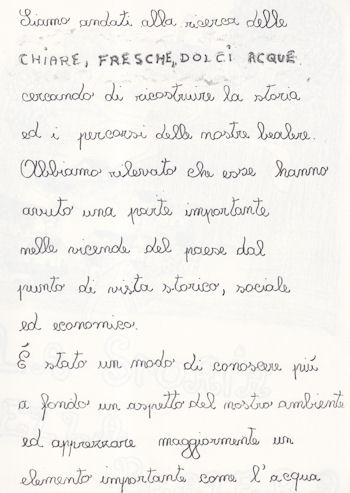 Siamo andati alla ricerca delle
CHIARE, FRESCHE, DOLCI ACQUE
cercando di ricostruire la storia
ed i percorsi delle nostre bealere.
Abbiamo rilevato che esse hanno
avuto una parte importante
nelle vicende del paese dal
punto di vista storico, sociale
ed economico.
É stato un modo di conoscere più
a fondo un aspetto del nostro ambiente
ed apprezzare maggiormente un
elemento importante come l'acqua